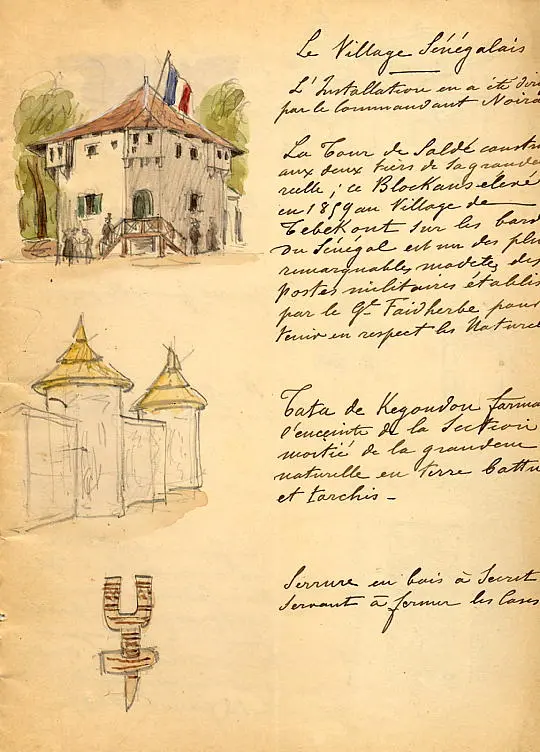 Le Village Sénégalais
L'Installation en a été dir
par le Commandant Noir
La Tour de Saldé constr
aux deux tiers de sa grande
réelle ; ce Blockaus élevé
en 1859 au Village de
Tebekout sur les bord
du Sénégal est un des plu
remarquables modèles des
postes militaires établis
par le Gal Faidherbe pour
tenir en respect les Naturel
Tata de Kegoudou forma
l'enceinte de la Section
moitié de la grandeur
naturelle en terre battu
et torchis -
Serrure en bois à Secret
Servant à fermer les Cases